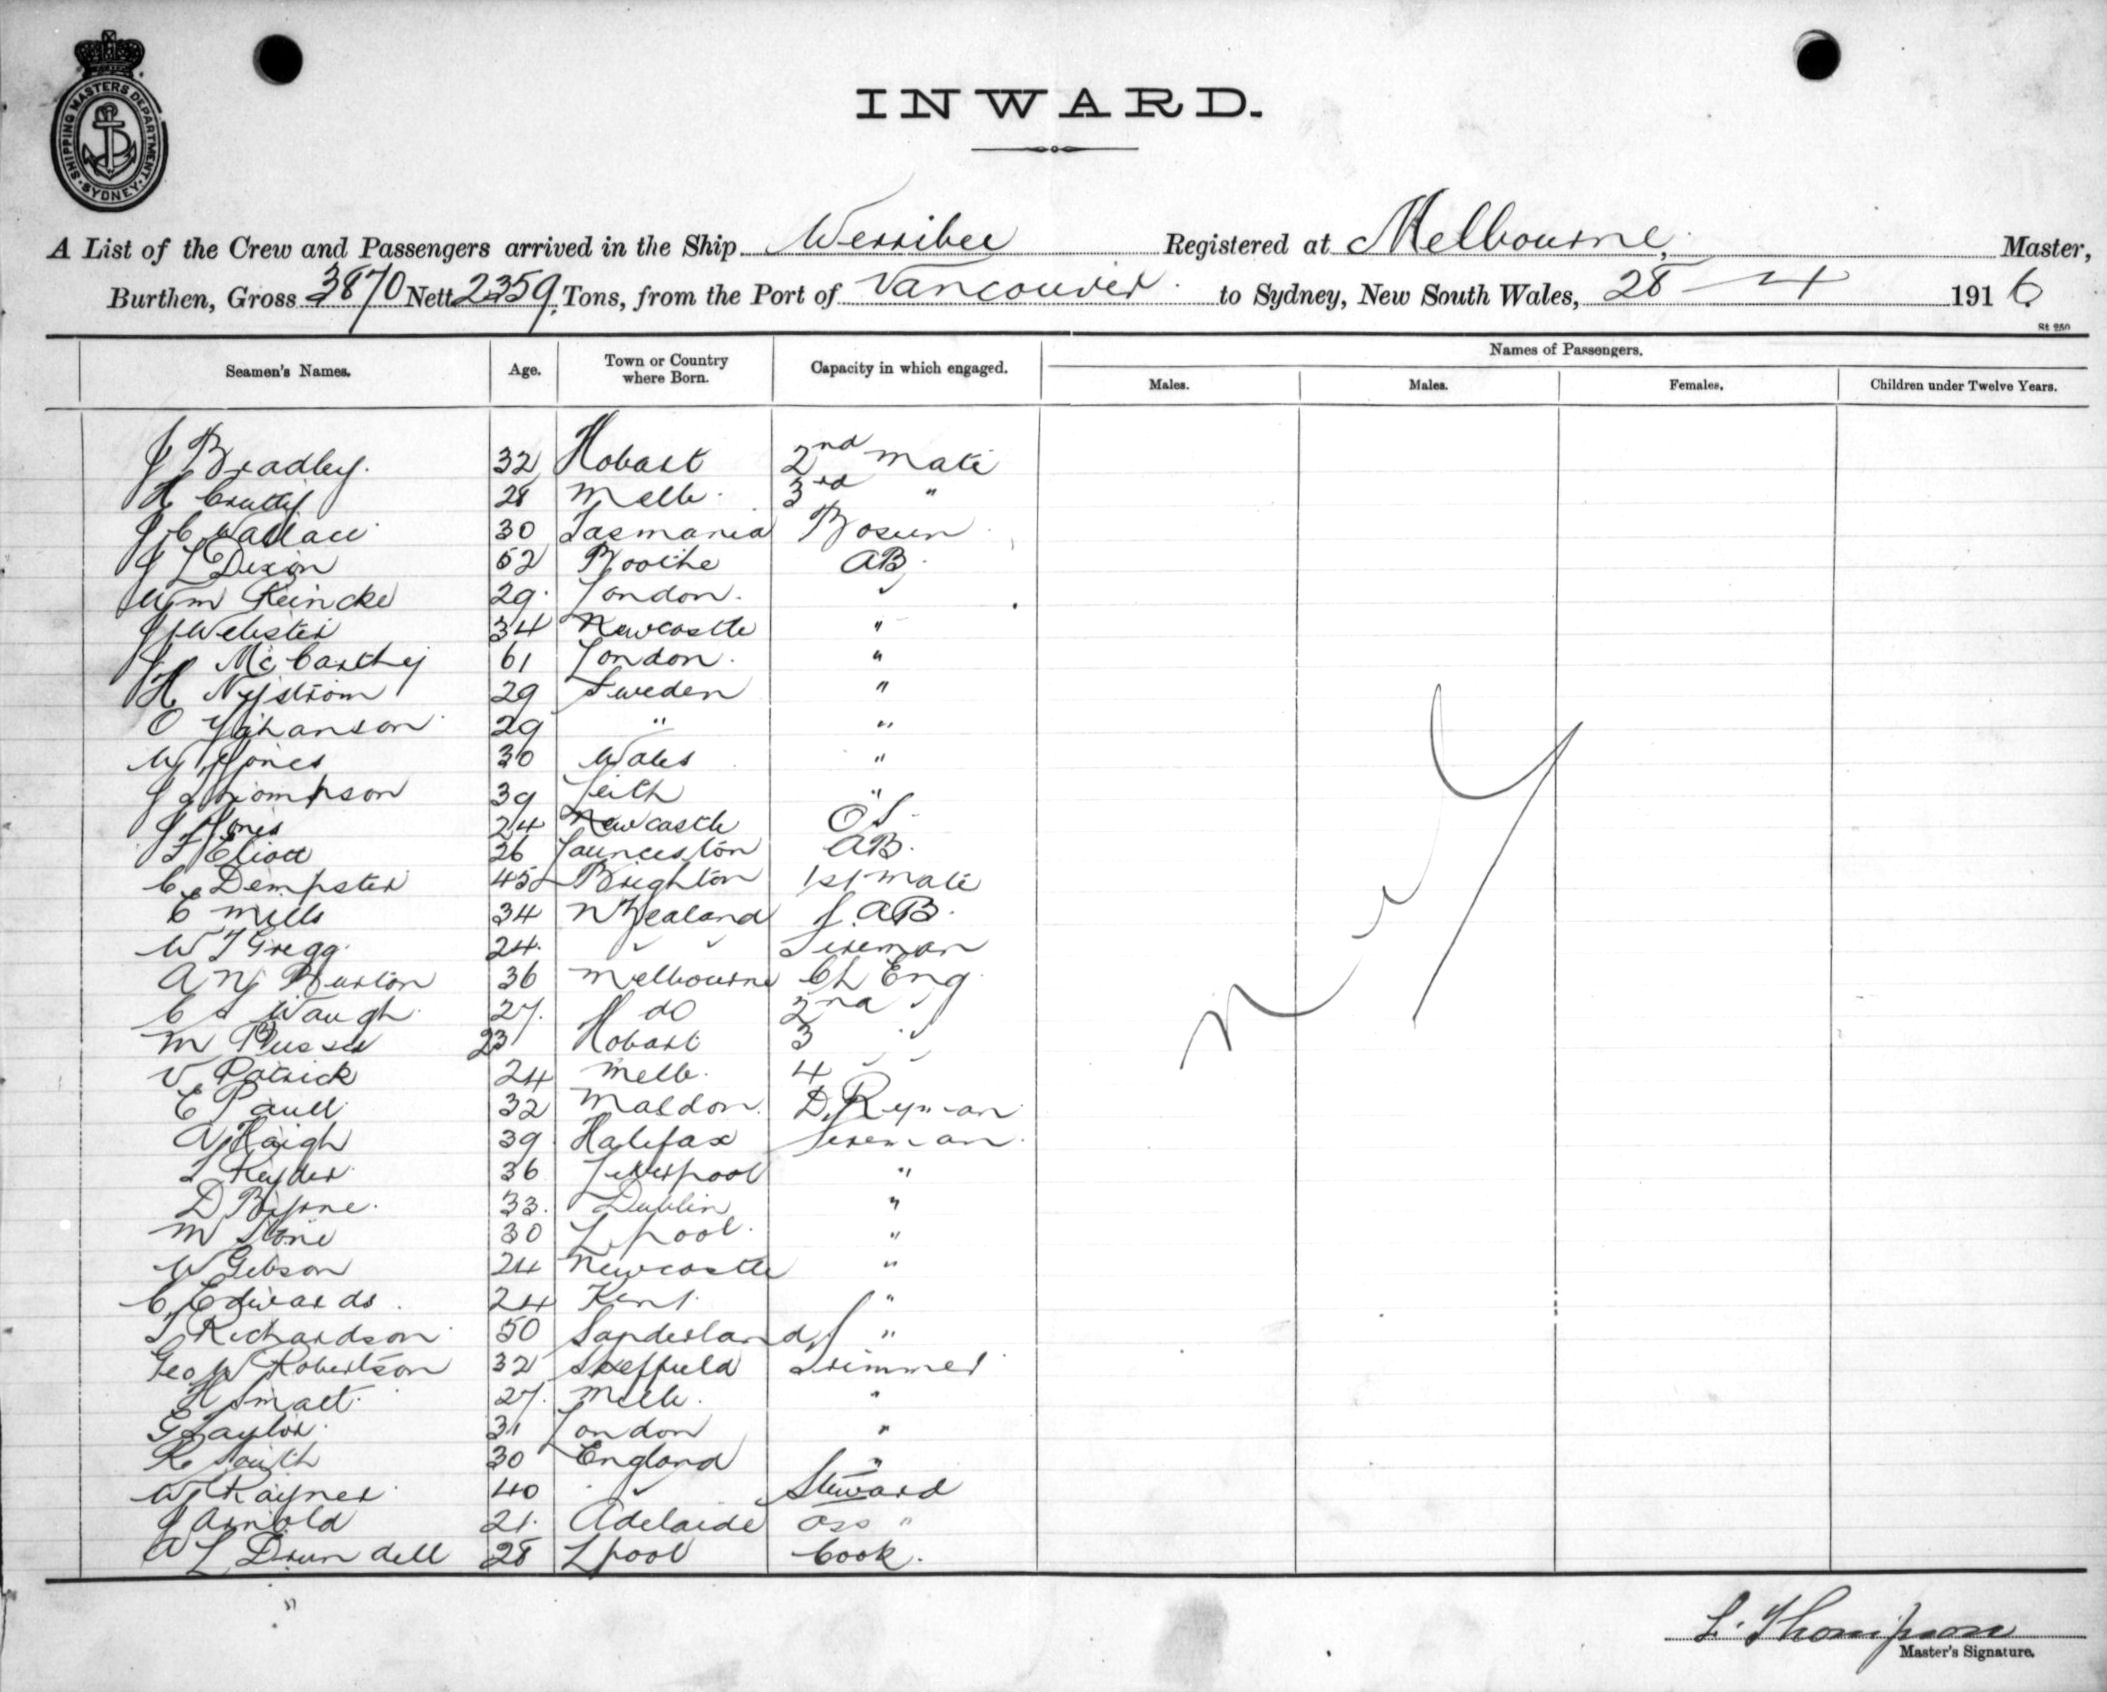 SHIPPING MASTERS DEPARTMENT
SYDNEY
INWARD.
A List of the Crew and Passengers arrived in the Ship Werribee Registered at Melbourne, Master,
Burthen, Gross 3870 Nett 2359 Tons, from the Port of Vancouver to Sydney, New South Wales, 28 - 4 1916
St 250
Seamen's Names. Age. Town or Country where Born. Capacity in which engaged. Names of Passengers.
Males. Males. Females. Children under Twelve Years.
J Bradley. 32 Hobart 2nd Mate
H 28 Melb. 3rd "
J C Wallace 30 Tasmania Bosun
J L Dixon 52 AB
Wm Reincke 29 London. "
J Webster 34 Newcastle "
J McCarthy 61 London. "
H Nystrom 29 Sweden "
O Yohanson 29 " "
W Jones 30 Wales "
J Thompson 39 Leith "
J Jones 24 Newcastle OS
F Eliott 26 Launceston AB.
C Dempster 45 Brighton 1st Mate
E Mills 34 N Zealand AB.
W T Gregg. 24. " " Fireman
A W Burton 36 Melbourne Ch Eng.
C S Waugh 27. do 2nd "
M 23 Hobart 3 "
V Patrick 24 Melb. 4 " "
E Paull 32 Maldon. D.Keyman
A Haigh 39 Halifax Fireman.
36 Liverpool "
D Byrne. 33. Dublin "
M Stone 30 L.pool. "
W Gibson 24 Newcastle "
C. Edwards. 24 Kent "
T Richardson 50 Sunderland "
Geo W Robertson 32 Sheffield Trimmer
H Smalt. 27. Melb. "
G Taylor. 31 London "
R South 30 England "
W Rayner. 40 " Steward
J Arnold 21. Adelaide ass "
W L Drundell 28 Lpool Cook.
"
L. Thompson
Master's Signature.